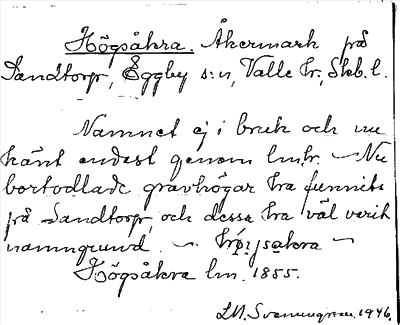 Högsåkra. Åkermark på
Sandtorp, Eggby s:n, Valle hr, Skb. l.
Namnet ej i bruk och nu
känt endast genom lm.hr. – Nu
bortodlade gravhögar ha funnits
på Sandtorp, och dessa ha väl varit
namngrund. –
Högsåkra lm. 1855.
1946.